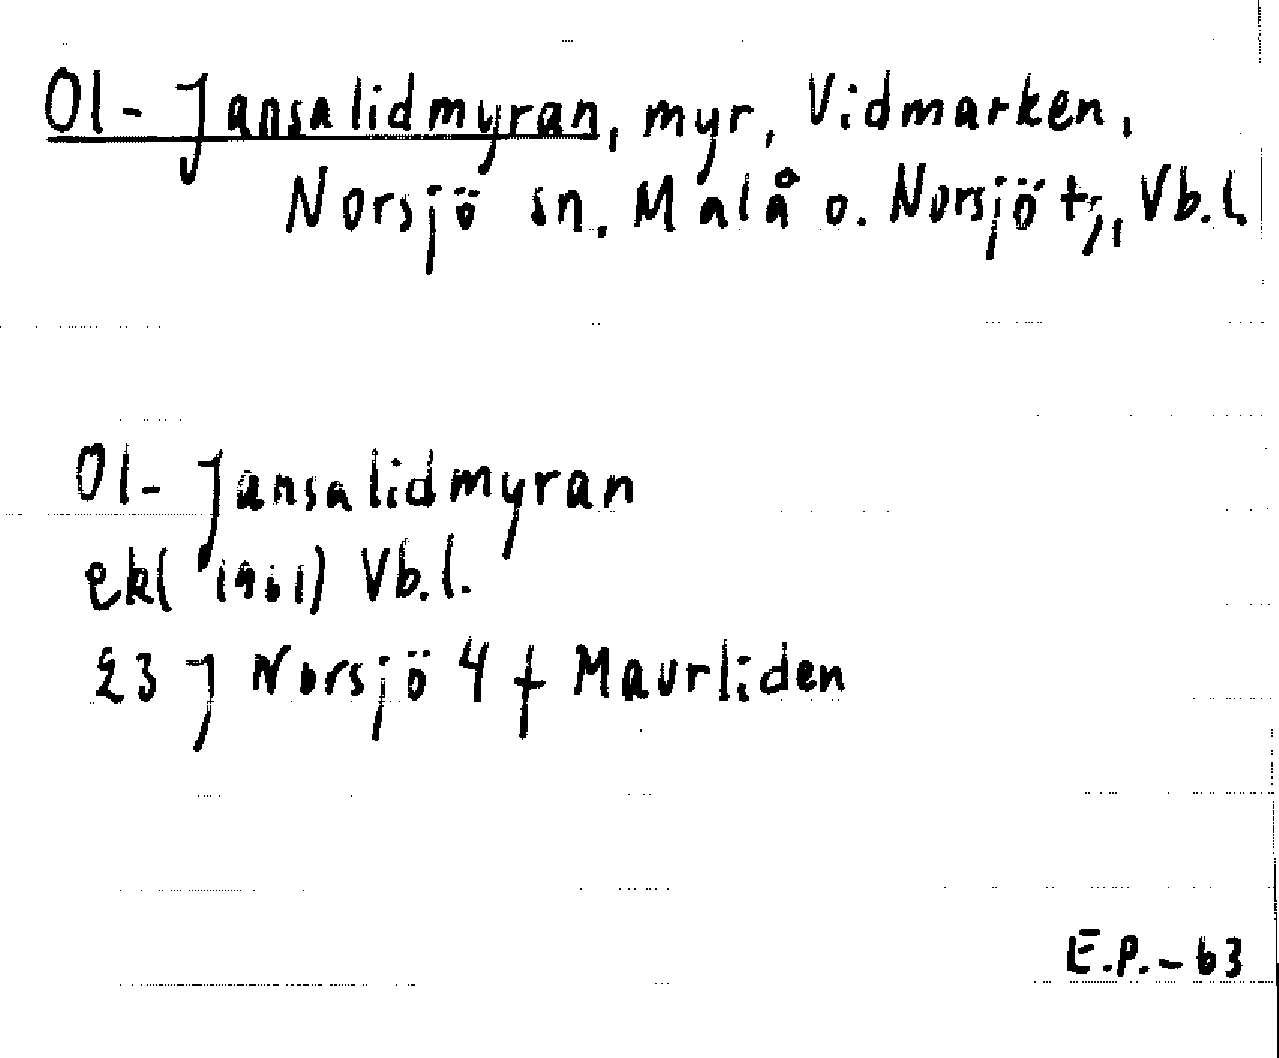 Ol-Jansalidmyran, myr, Vidmarken,
Norsjö sn. Malå o. Norsjö tg, Vb.l.
Ol-Jansalidmyran
ekl (1961) Vb.l.
23 J Norsjö 4 f Maurliden
E.P.-63